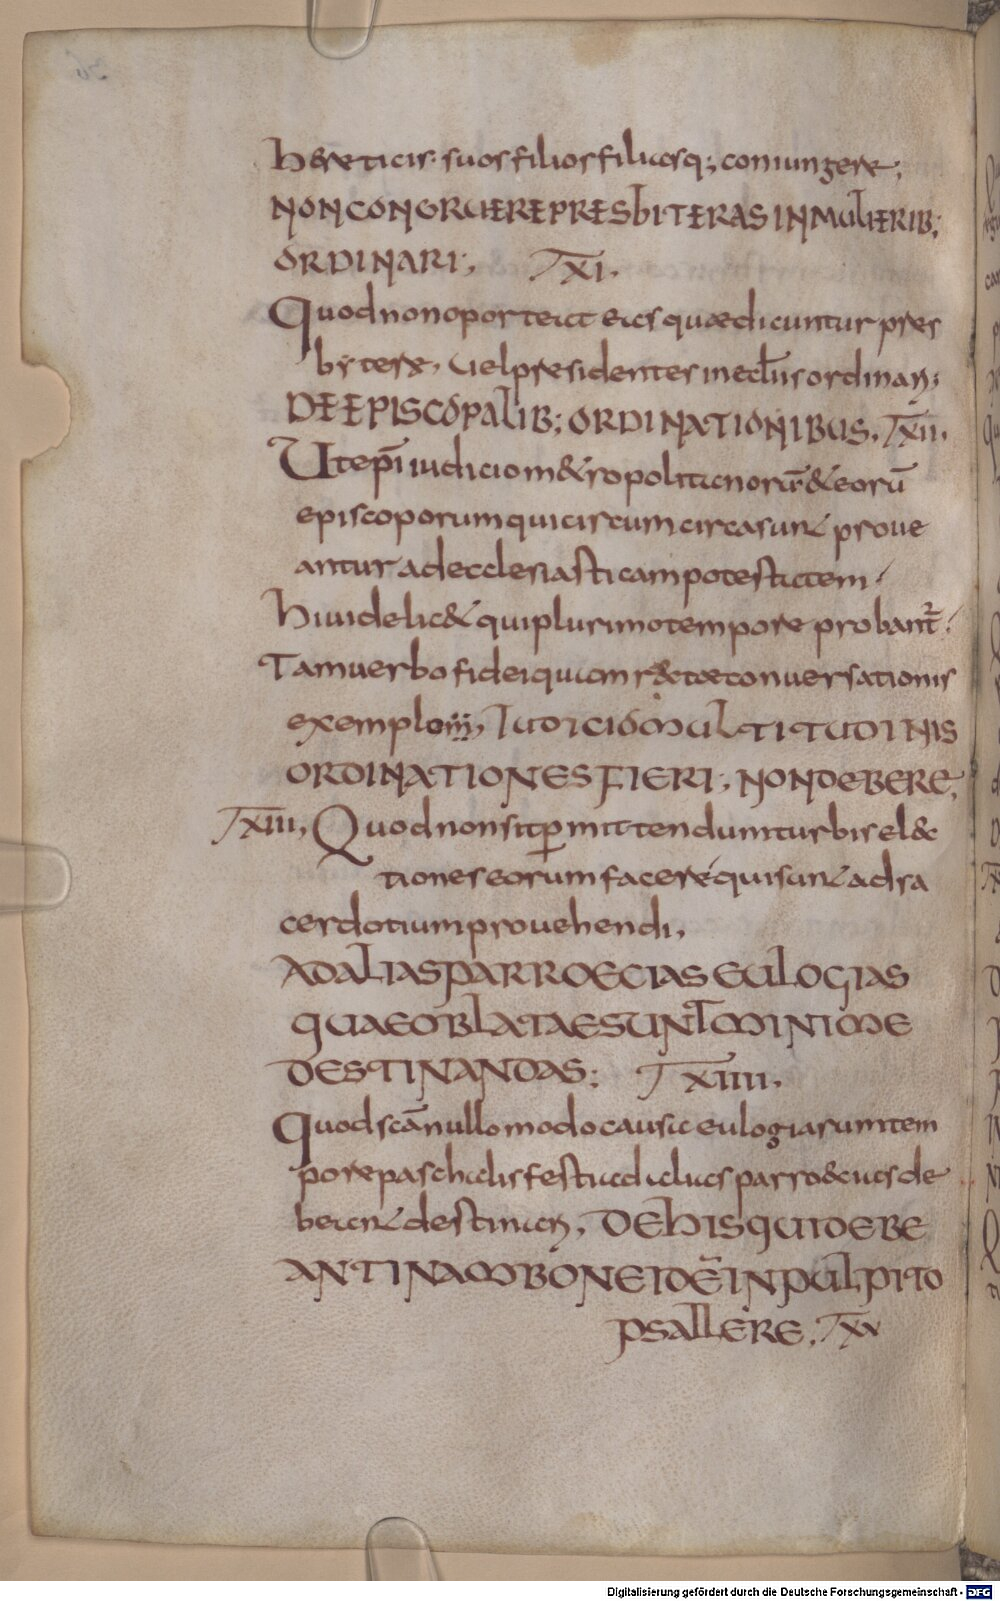 hereticis. suos filios filiasq; coniungere;
NON CONGRUERE PRESBITERAS IN MULIERIB;
ORDINARI; T XI.
Quod non oporteat eas quae dicuntur pres
bytere, vel presidentes in eccłiis ordinari;
DE EPISCOPALIB; ORDINATIONIBUS. T XII.
Ut ep̄i iudicio m&ropolitanorū & eorū
episcoporum qui circum circa sunt prove
antur ad ecclesiasticam potestatem.
hi videlic& qui plurimo tempore probant̄.
Tam verbo fidei quam r&tae conversationis
exemplo; IUDICIO MULTITUDINIS
ORDINATIONES FIERI; NON DEBERE,
T XIII, Quod non sit ꝑmittendum turbis el&
tiones eorum facere qui sunt ad sa
cerdotium provehendi,
AD ALIAS PARROECIAS EULOGIAS
QUAE OBLATAE SUNT MINIME
DESTINANDAS; T XIIII.
Quod scā nullo modo causa eulogiarum tem
pore paschalis festiuitatis parro&cias de
beant destinari, DE HIS QUI DEBE
ANT IN AMBONE ID Ē IN PULPITO
PSALLERE, T XV
Digitalisierung gefördert durch die Deutsche Forschungsgemeinschaft - DFG